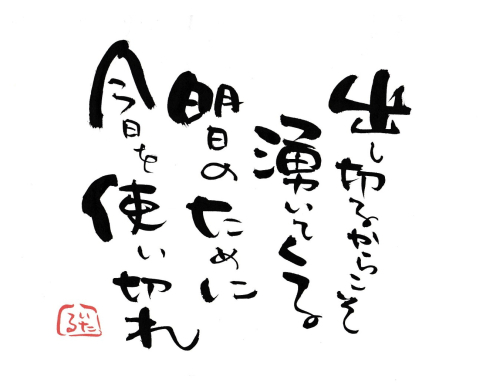 出し切るからこそ
湧いてくる
明日のために
今日を
使い切れ
いたる